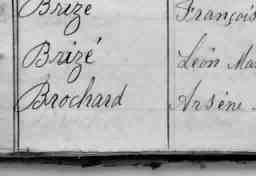 Brizé François
Brizé Léon
Brochard Arsène